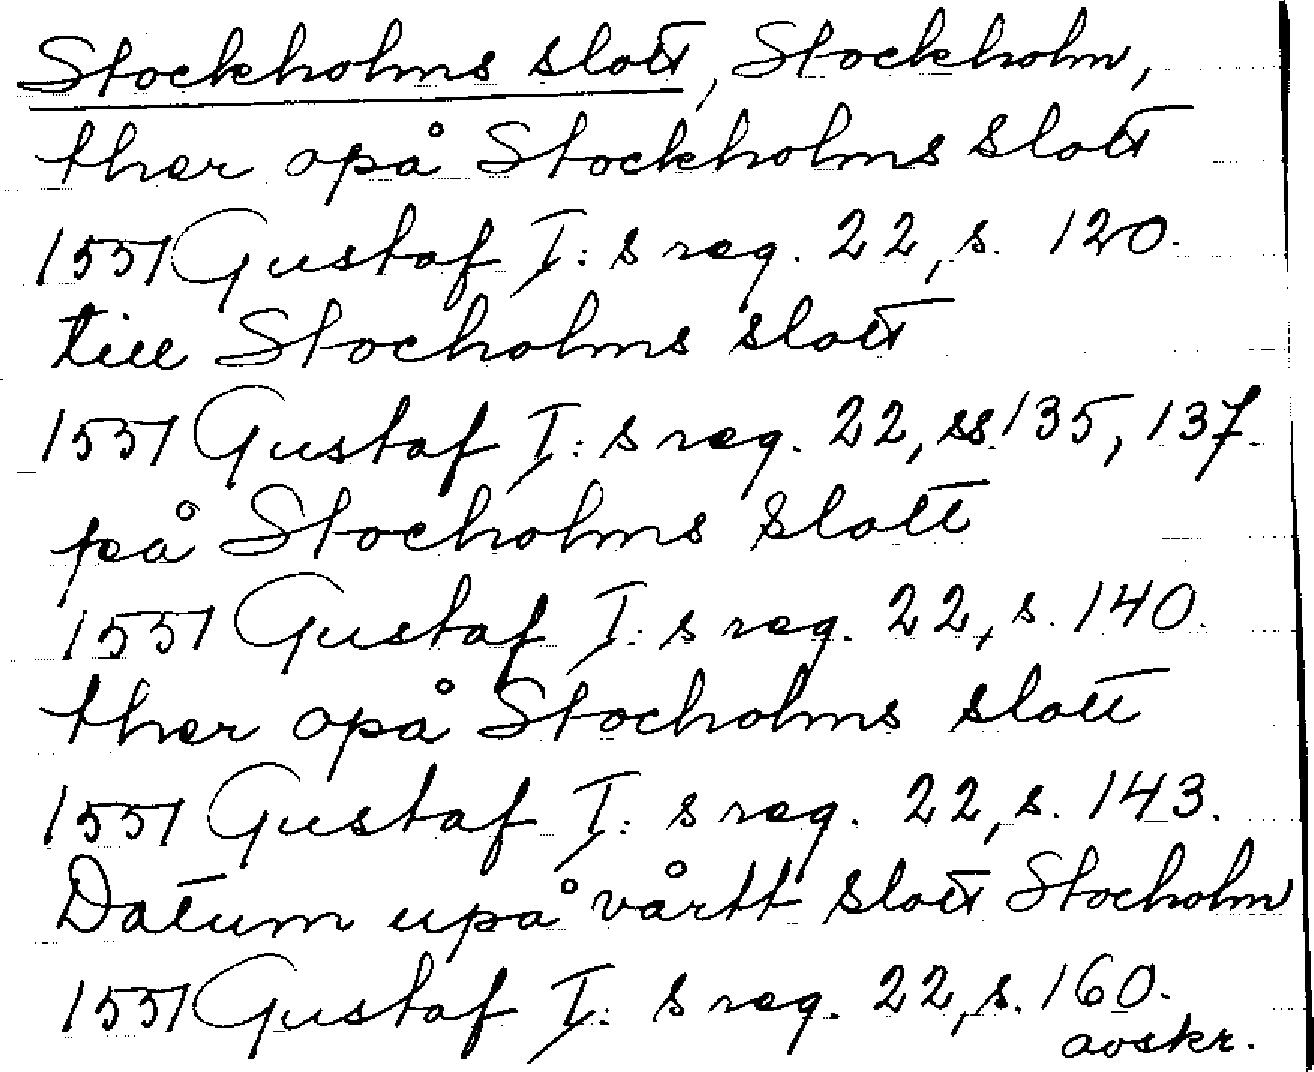 Stockholms slott, Stockholm,
ther opå Stockholms slott
1551 Gustaf I:s reg. 22, s. 120.
till Stocholms slott
1551 Gustaf I:s reg. 22, ss. 135, 137.
på Stocholms slott
1551 Gustaf I:s reg. 22, s. 140.
ther opå Stocholms slott
1551 Gustaf I:s reg. 22, s. 143.
Datum upå vårtt slott Stocholm
1551 Gustaf I:s reg. 22, s. 160.
avskr.